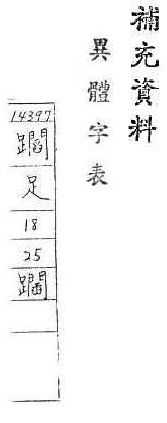 補充資料
異體字表
14397
躢
足
18
25